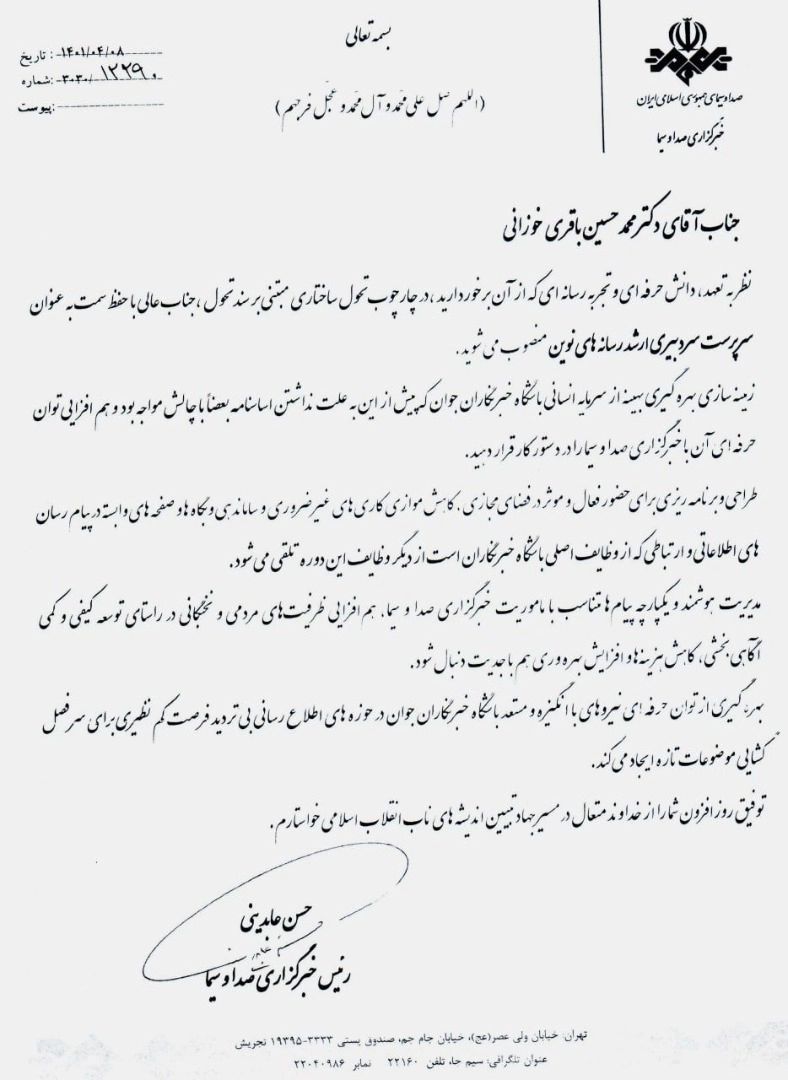 بسمه تعالی
(اللهم صل علی محمد و آل محمد و عجل فرجهم)
صدا و سیمای جمهوری اسلامی ایران
خبرگزاری صدا و سیما
تاریخ: ۱۴۰۱/۰۴/۰۸
شماره: ۳۰۳۰/۱۲۲۹۰
پیوست:
جناب آقای دکتر محمد حسین باقری خوزانی
نظر به تعهد، دانش حرفه ای و تجربه رسانه ای که از آن برخوردارید، در چارچوب تحول ساختاری مبتنی بر سند تحول، جناب عالی با حفظ سمت به عنوان
سرپرست سردبیری ارشد رسانه های نوین منصوب می شوید.
زمینه سازی بهره گیری بهینه از سرمایه انسانی باشگاه خبرنگاران جوان که پیش از این به علت نداشتن اساسنامه بعضاً با چالش مواجه بود و هم افزایی توان
حرفه ای آن با خبرگزاری صدا و سیما را در دستور کار قرار دهید.
طراحی و برنامه ریزی برای حضور فعال و موثر در فضای مجازی، کاهش موازی کاری های غیر ضروری و ساماندهی وبگاه ها و صفحه های وابسته در پیام رسان
های اطلاعاتی و ارتباطی که از وظایف اصلی باشگاه خبرنگاران است از دیگر وظایف این دوره تلقی می شود.
مدیریت هوشمند و یکپارچه پیام ها متناسب با ماموریت خبرگزاری صدا و سیما، هم افزایی ظرفیت های مردمی و نخبگانی در راستای توسعه کیفی و کمی
آگاهی بخشی، کاهش هزینه ها و افزایش بهره وری هم با جدیت دنبال شود.
بهره گیری از توان حرفه ای نیروهای با انگیزه و مستعد باشگاه خبرنگاران جوان در حوزه های اطلاع رسانی بی تردید فرصت کم نظیری برای سرفصل
گشایی موضوعات تازه ایجاد می کند.
توفیق روز افزون شما را از خداوند متعال در مسیر جهاد تبیین اندیشه های ناب انقلاب اسلامی خواستارم.
حسن عابدینی
رئیس خبرگزاری صدا و سیما
تهران: خیابان ولی عصر(عج)، خیابان جام جم، صندوق پستی ۳۳۳۳-۱۹۳۹۵ تجریش
عنوان تلگرافی: سیم جا، تلفن ۲۲۱۶۰ نمابر ۲۲۰۴۰۹۸۶